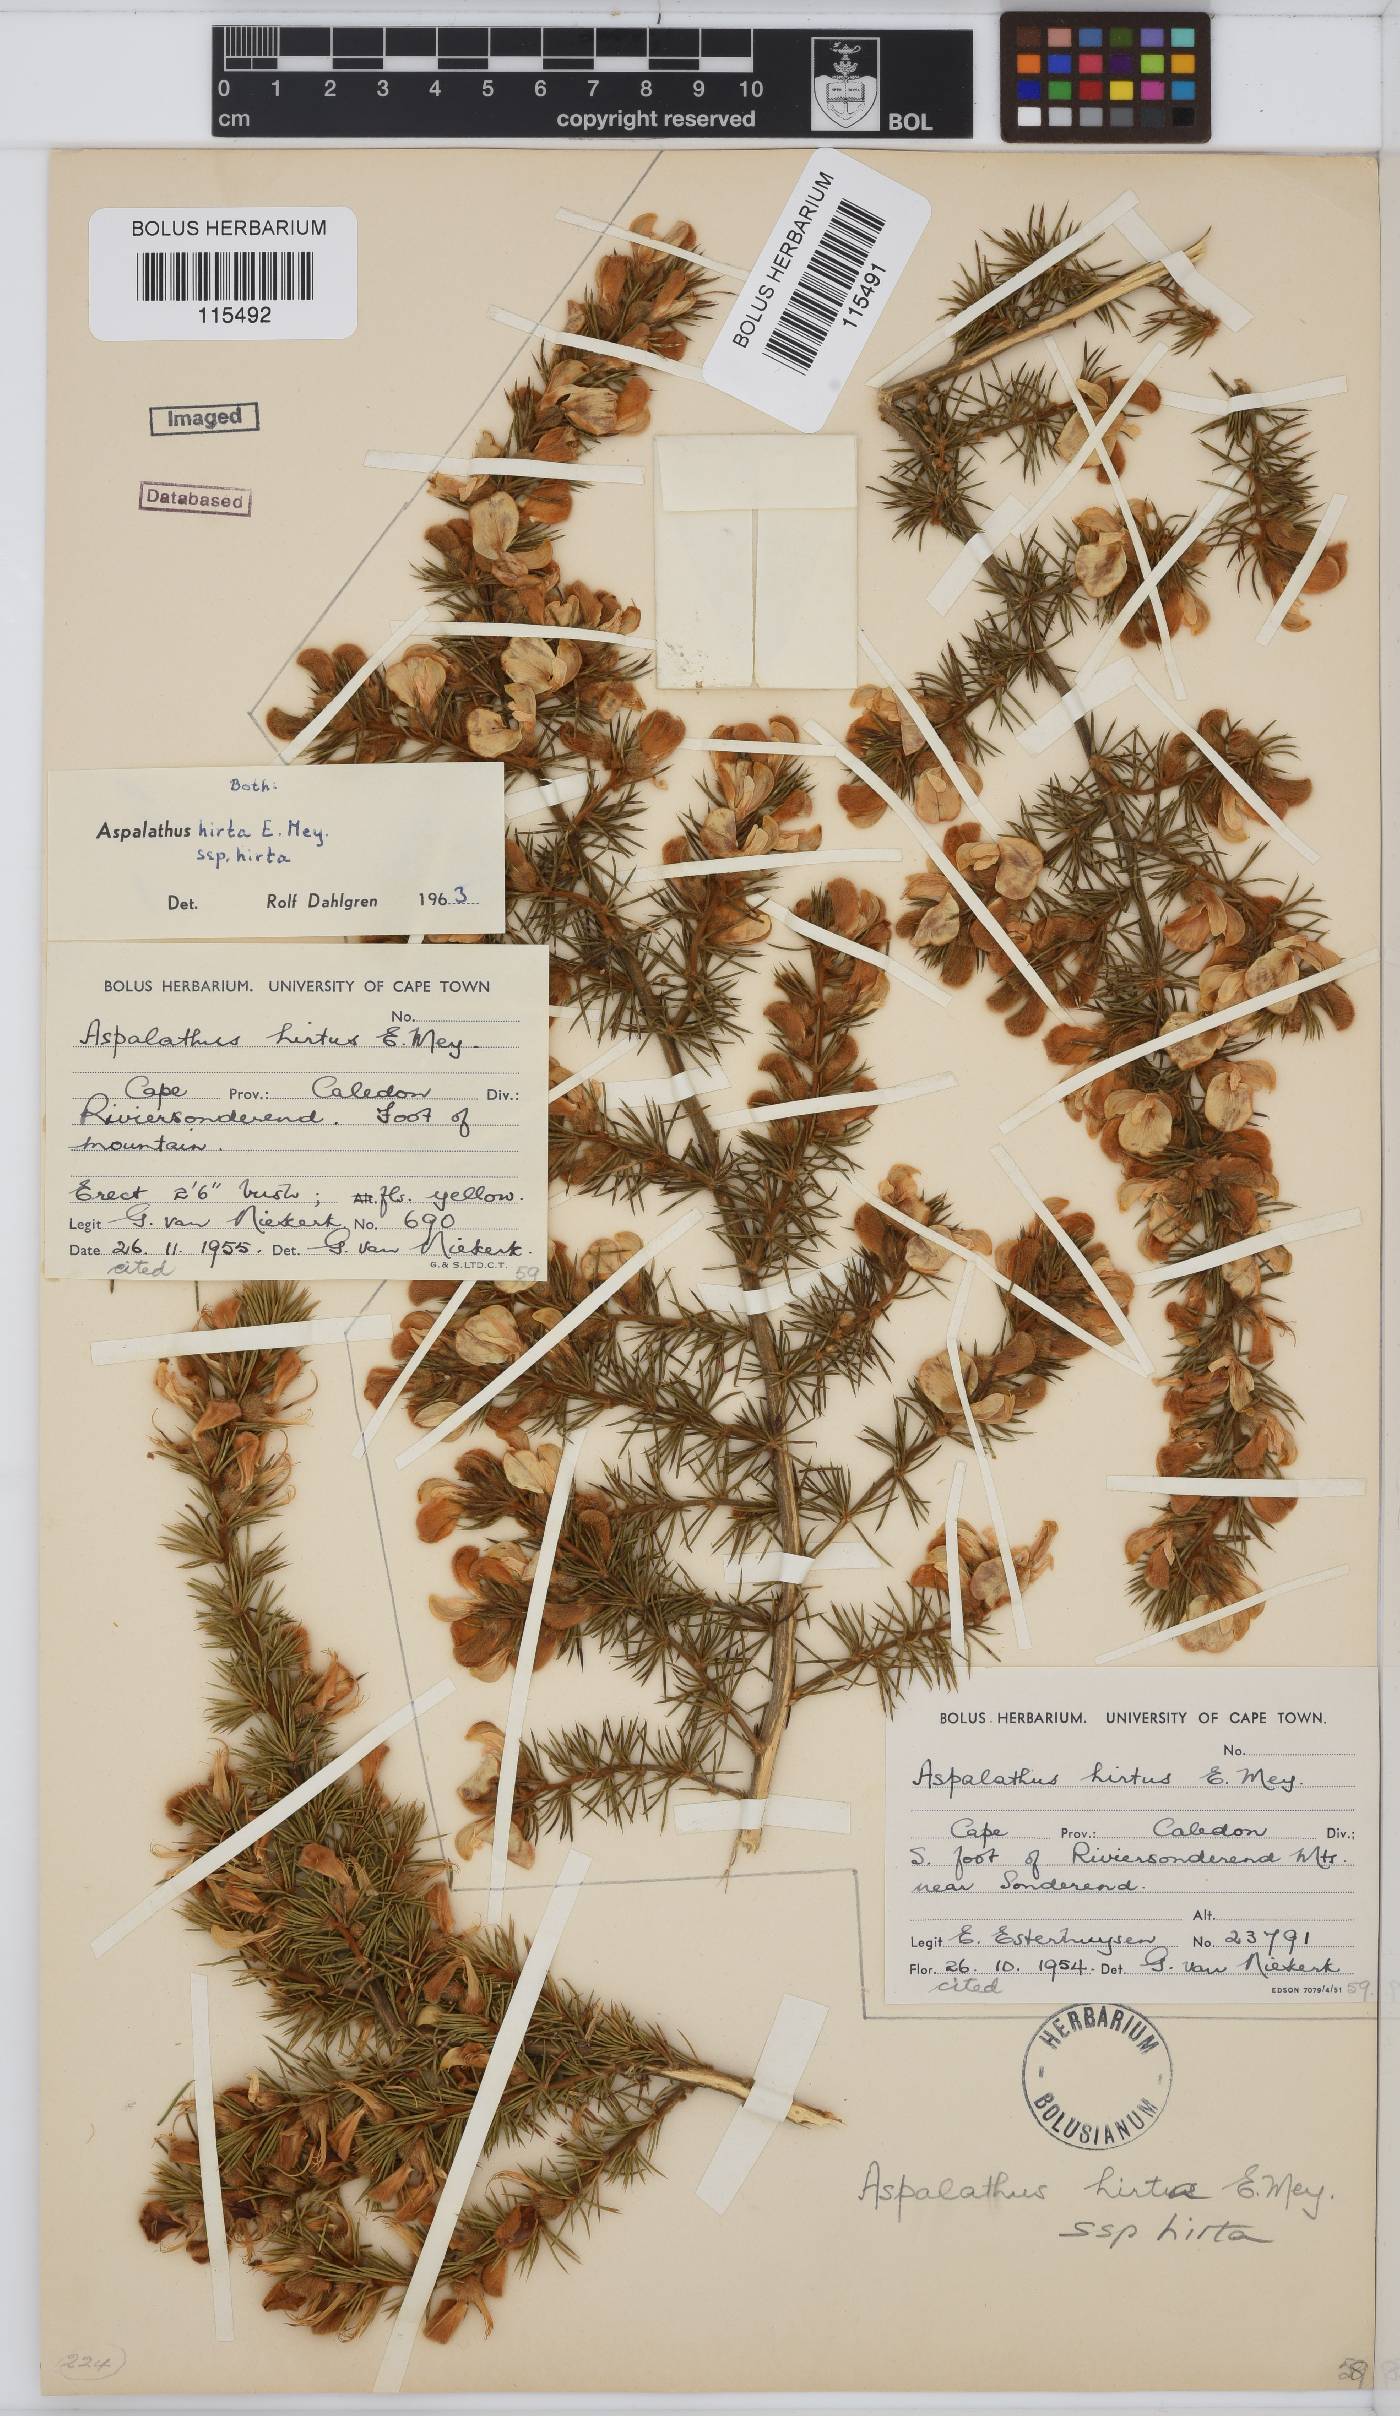 0 1 2 3 4 5 6 7 8 9 10
cm
copyright reserved
BOL
BOLUS HERBARIUM
115492
BOLUS HERBARIUM
115491
Imaged
Databased
Both:
Aspalathus hirta E. Mey.
ssp. hirta
Det. Rolf Dahlgren 1963
BOLUS HERBARIUM. UNIVERSITY OF CAPE TOWN
No.
Aspalathus hirtus E. Mey.
Cape Prov.: Caledon Div.:
Riviersonderend. Foot of
mountain.
Erect 2'6" bush; fls. yellow.
Legit G. van Niekerk No. 690
Date 26. 11. 1955. Det. G. van Niekerk.
cited
G. & S. LTD. C.T.
59
BOLUS HERBARIUM. UNIVERSITY OF CAPE TOWN.
No.
Aspalathus hirtus E. Mey.
Cape Prov.: Caledon Div.:
S. foot of Riviersonderend Mts.
near Sonderend.
Alt.
Legit E. Esterhuysen No. 23791
Flor. 26. 10. 1954. Det. G. van Niekerk
cited
EDSON 7079/4/51
59.
HERBARIUM
BOLUSIANUM
Aspalathus hirta E. Mey.
ssp hirta
224